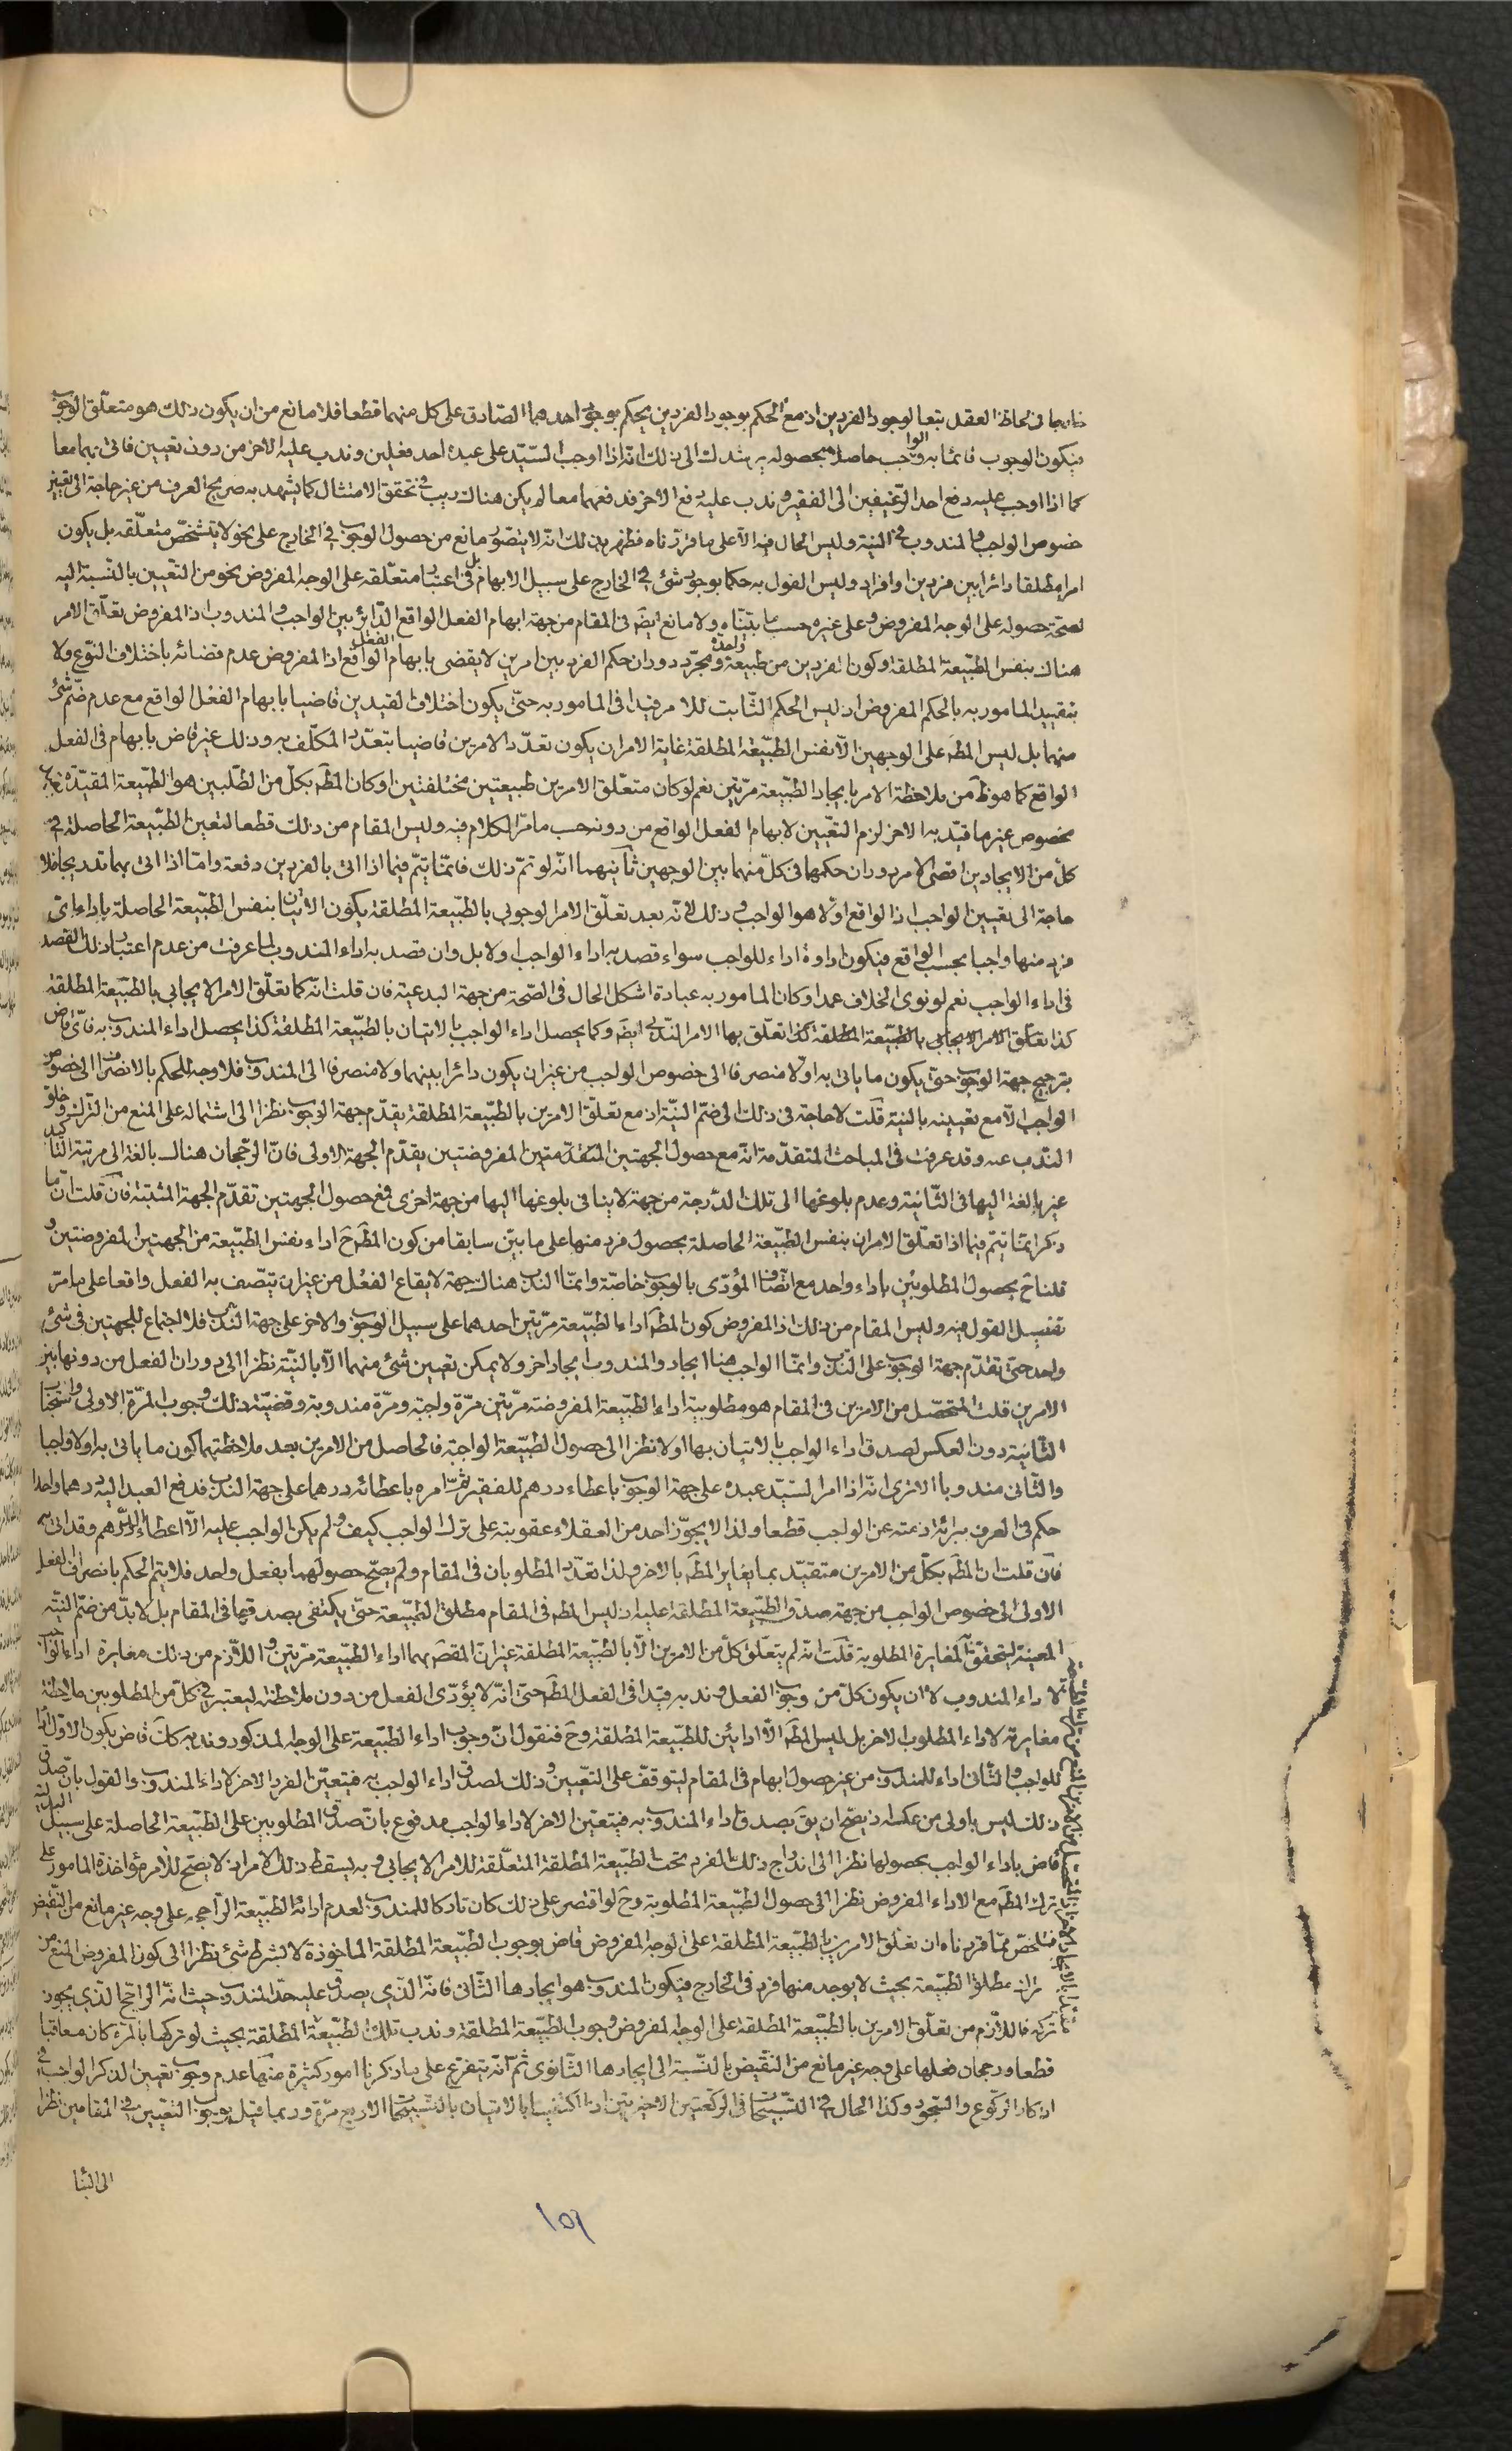 خارجا في لحاظ العقد تبعا لوجود الفردين اذ مع الحكم بوجود الفردين يحكم بوجود احدهما الصّادق على كل منهما قطعا فلا مانع من ان يكون ذلك هو متعلّق الوجوب
فيكون الوجوب قائما به والواجب حاصلا بحصوله يرشدك الى ذلك انه اذا اوجب السّيّد على عبده احد فعلين وندب عليه الاخر من دون تعيين فاتى بهما معا
كما اذا اوجب عليه دفع احد الرّغيفين الى الفقير وندب عليه دفع الاخر فدفعهما معا لم يكن هناك ريب في تحقق الامتثال كما يشهد به صريح العرف من غير حاجة الى تعيين
خصوص الواجب والمندوب في النية وليس الحال فيه الا على ما قرّرناه فظهر بذلك انه لا يتصوّر مانع من حصول الوجوب في الخارج على نحو لا يتشخّص متعلّقه بل يكون
امرا مطلقا دائرا بين فردين او افراد وليس القول به حكما بوجود شئ في الخارج على سبيل الابهام بل في اعتبار متعلّقه على الوجه المفروض نحو من التعيين بالنّسبة اليه
لصحة حصوله على الوجه المفروض وعلى غيره حسب ما بيّنّاه ولا مانع ايضا في المقام من جهة ابهام الفعل الواقع الدّائر بين الواجب والمندوب اذ المفروض تعلّق الامر
هناك بنفس الطبيعة المطلقة وكون الفردين من طبيعة واحدة ومجرّد دوران حكم الفرد بين امرين لا يقضى بابهام الفعل الواقع اذ المفروض عدم قضائه باختلاف النوع ولا
بتقييد المامور به بالحكم المفروض اذ ليس الحكم الثّابت للامر قيدا في المامور به حتّى يكون اختلاف القيدين قاضيا بابهام الفعل الواقع مع عدم ضمّ شئ
منهما بل ليس المط على الوجهين الّا نفس الطبيعة المطلقة غاية الامر ان يكون تعدّد الامرين قاضيا بتعدّد المكلّف به وذلك غير قاض بابهام في الفعل
الواقع كما هو ظ من ملاحظة الامر بايجاد الطبيعة مرّتين نعم لو كان متعلّق الامرين طبيعتين مختلفتين او كان المط بكلّ من الطّلبين هو الطبيعة المقيّدة بقيد
مخصوص غير ما قيّد به الاخر لزم التعيين لابهام الفعل الواقع من دونه حسب ما مرّ الكلام فيه وليس المقام من ذلك قطعا لتعين الطبيعة الحاصلة في
كلّ من الايجادين اقصى الامر دوران حكمها في كلّ منهما بين الوجهين ثانيهما انّه لو تمّ ذلك فانّما يتمّ فيما اذا اتى بالفردين دفعة وامّا اذا اتى بهما تدريجا فلا
حاجة الى تعيين الواجب اذ الواقع اوّلا هو الواجب وذلك لانّه بعد تعلّق الامر الوجوبي بالطبيعة المطلقة يكون الاتيان بنفس الطبيعة الحاصلة باداء اى
فرد منها واجبا بحسب الواقع فيكون اداؤه اداء للواجب سواء قصد به اداء الواجب او لا بل وان قصد به اداء المندوب لما عرفت من عدم اعتبار ذلك القصد
في اداء الواجب نعم لو نوى الخلاف عمدا وكان المامور به عبادة اشكل الحال في الصّحة من جهة البدعية فان قلت انّه كما تعلّق الامر الايجابي بالطبيعة المطلقة
كذا تعلّق بها الامر الندبي ايضا وكما يحصل اداء الواجب بالاتيان بالطبيعة المطلقة كذا يحصل اداء المندوب به فاىّ قاض
بترجيح جهة الوجوب حتّى يكون ما ياتى به اولا منصرفا الى خصوص الواجب من غير ان يكون دائرا بينهما ولا منصرفا الى المندوب فلا وجه للحكم بالانصراف الى خصوص
الواجب الّا مع تعيينه بالنية قلت لا حاجة في ذلك الى ضمّ النيّة اذ مع تعلّق الامرين بالطبيعة المطلقة يقدّم جهة الوجوب نظرا الى اشتماله على المنع من الترك وخلوّ
النّدب عنه وقد عرفت في المباحث المتقدّمة انّه مع حصول الجهتين المتقدّمتين المفروضتين يقدّم الجهة الاولى فانّ الرّجحان هناك بالغة الى مرتبة التّاكيد
غير بالغة اليها في الثّانية وعدم بلوغها الى تلك الدّرجة من جهة لا ينافي بلوغها اليها من جهة اخرى فمع حصول الجهتين تقدّم الجهة المثبتة فان قلت ان ما
ذكر انّما يتمّ فيما اذا تعلّق الامران بنفس الطبيعة الحاصلة بحصول فرد منها على ما بيّن سابقا من كون المط ح اداء نفس الطبيعة من الجهتين المفروضتين و
قلنا ح بحصول المطلوبين باداء واحد مع اتّصاف المؤدّى بالوجوب خاصّة وانّما الندب هناك جهة لايقاع الفعل من غير ان يتّصف به الفعل واقعا على ما مرّ
تفصيل القول فيه وليس المقام من ذلك اذ المفروض كون المط اداء الطبيعة مرّتين احدهما على سبيل الوجوب والاخر على جهة الندب فلا اجتماع للجهتين في شئ
واحد حتّى تقدّم جهة الوجوب على النّدب وانّما الواجب هنا ايجاد والمندوب ايجاد اخر ولا يمكن تعيين شئ منهما الّا بالنيّة نظرا الى دوران الفعل من دونها بين
الامرين قلت المتحصّل من الامرين في المقام هو مطلوبية اداء الطبيعة المفروضة مرّتين مرّة واجبة ومرّة مندوبة وقضيّة ذلك وجوب المرّة الاولى واستحباب
الثّانية دون العكس لصدق اداء الواجب بالاتيان بها اولا نظرا الى حصول الطبيعة الواجبة فالحاصل من الامرين بعد ملاحظتهما كون ما ياتى به اولا واجبا
والثّانى مندوبا الا ترى انّه اذا امر السّيّد عبده على جهة الوجوب باعطاء درهم للفقير ثمّ امره باعطائه درهما على جهة الندب فدفع العبد اليه درهما واحدا
حكم في العرف ببرائة ذمّته عن الواجب قطعا ولذا لا يجوّز احد من العقلاء عقوبته على ترك الواجب كيف ولم يكن الواجب عليه الّا اعطاء الدّرهم وقد اتى به
فان قلت ان المط بكلّ من الامرين متقيّد بما يغاير المط بالاخر ولذا تعدّد المطلوبان في المقام ولم يصحّ حصولهما بفعل واحد فلا يتمّ الحكم بانصراف الفعل
الاول الى خصوص الواجب من جهة صدق الطبيعة المطلقة عليه اذ ليس المط في المقام مطلق الطبيعة حتّى يكتفى بصدقها في المقام بل لا بدّ من ضمّ النيّة
المعينة ليتحقّق المغايرة المطلوبة قلت انه لم يتعلّق كلّ من الامرين الّا بالطبيعة المطلقة غير انّ المقص بهما اداء الطبيعة مرّتين واللّازم من ذلك مغايرة اداء الواجب
لاداء المندوب لا ان يكون كلّ من وجوب الفعل وندبه قيدا في الفعل المط حتّى انّه لا يؤدّى الفعل من دون ملاحظته ليعتبر في كلّ من المطلوبين ملاحظة
مغايرته لاداء المطلوب الاخر بل ليس المط الّا ادائين للطبيعة المطلقة وح فنقول انّ وجوب اداء الطبيعة على الوجه المذكور وندبه كك قاض بكون الاول اداء
للواجب والثّانى اداء للمندوب من غير حصول ابهام في المقام ليتوقّف على التّعيين وذلك لصدق اداء الواجب به فيتعيّن الفرد الاخر لاداء المندوب والقول بانّ صدق
ذلك ليس باولى من عكسه اذ يصحّ ان يق بصدق اداء المندوب به فيتعين الاخر لاداء الواجب مدفوع بانّ صدق المطلوبين على الطبيعة الحاصلة على سبيل البدليّة
قاض باداء الواجب بحصولها نظرا الى اندراج ذلك الفرد تحت الطبيعة المطلقة المتعلّقة للامر الايجابي وبه يسقط ذلك الامر اذ لا يصحّ للامر مؤاخذة المامور على
ترك المط مع الاداء المفروض نظرا الى حصول الطبيعة المطلوبة وح لو اقتصر على ذلك كان تاركا للمندوب لعدم ادائه الطبيعة الرّاجحة على وجه غير مانع من النّقيض
فتلخّص ممّا قرّرناه ان تعلّق الامرين بالطبيعة المطلقة على الوجه المفروض قاض بوجوب الطبيعة المطلقة الماخوذة لا بشرط شئ نظرا الى كون المفروض المنع من
ترك مطلق الطبيعة بحيث لا يوجد منها فرد في الخارج فيكون المندوب هو ايجادها الثّانى فانّه الّذى يصدق عليه حدّ المندوب حيث انّه الرّاجح الّذى يجوز
تركه فاللّازم من تعلّق الامرين بالطبيعة المطلقة على الوجه المفروض وجوب الطبيعة المطلقة وندب تلك الطبيعة المطلقة بحيث لو تركها بالمرّة كان معاقبا
قطعا ورجحان فعلها على وجه غير مانع من النّقيض بالنّسبة الى ايجادها الثّانوى ثمّ انّه يتفرّع على ما ذكرنا امور كثيرة منها عدم وجوب تعيين الذكر الواجب في
اذكار الرّكوع والسّجود وكذا الحال في التّسبيحات في الرّكعتين الاخيرتين اذا اكتفينا بالاتيان بالتّسبيحات الاربع مرّة وربما قيل بوجوب التّعيين في المقامين نظرا
الى البنا
١٥٦